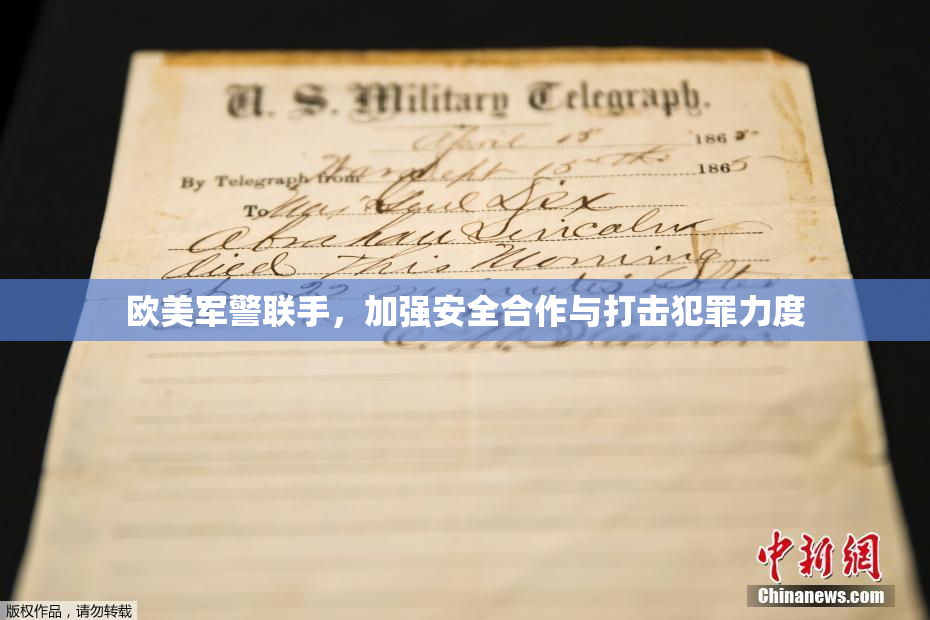 U. S. Military Telegraph.
April 15 1865
By Telegraph from War Dept 15th 1865
To Maj Genl Dix
Abraham Lincoln
died This Morning
at 22 minutes after
欧美军警联手，加强安全合作与打击犯罪力度
E. M. Stanton
中新网
Chinanews.com
版权作品，请勿转载